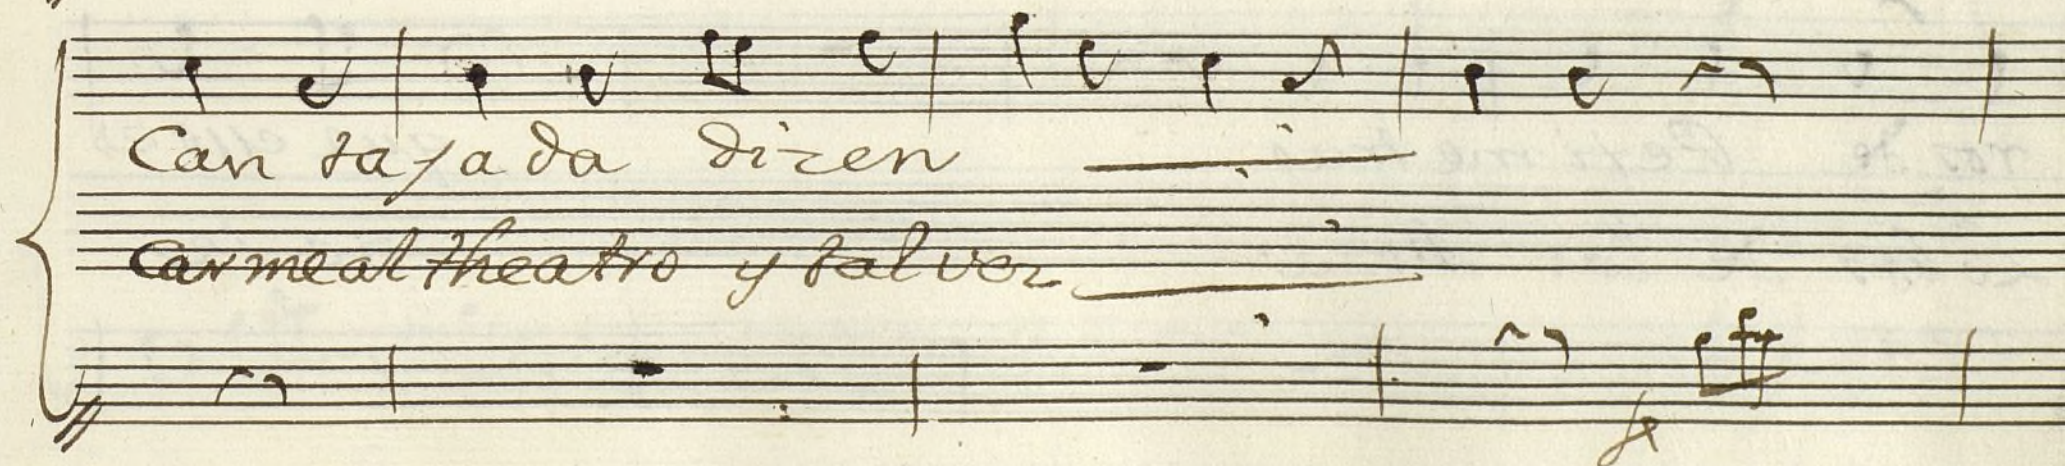 Can ta ja da dizen
Carme al theatro y tal vez